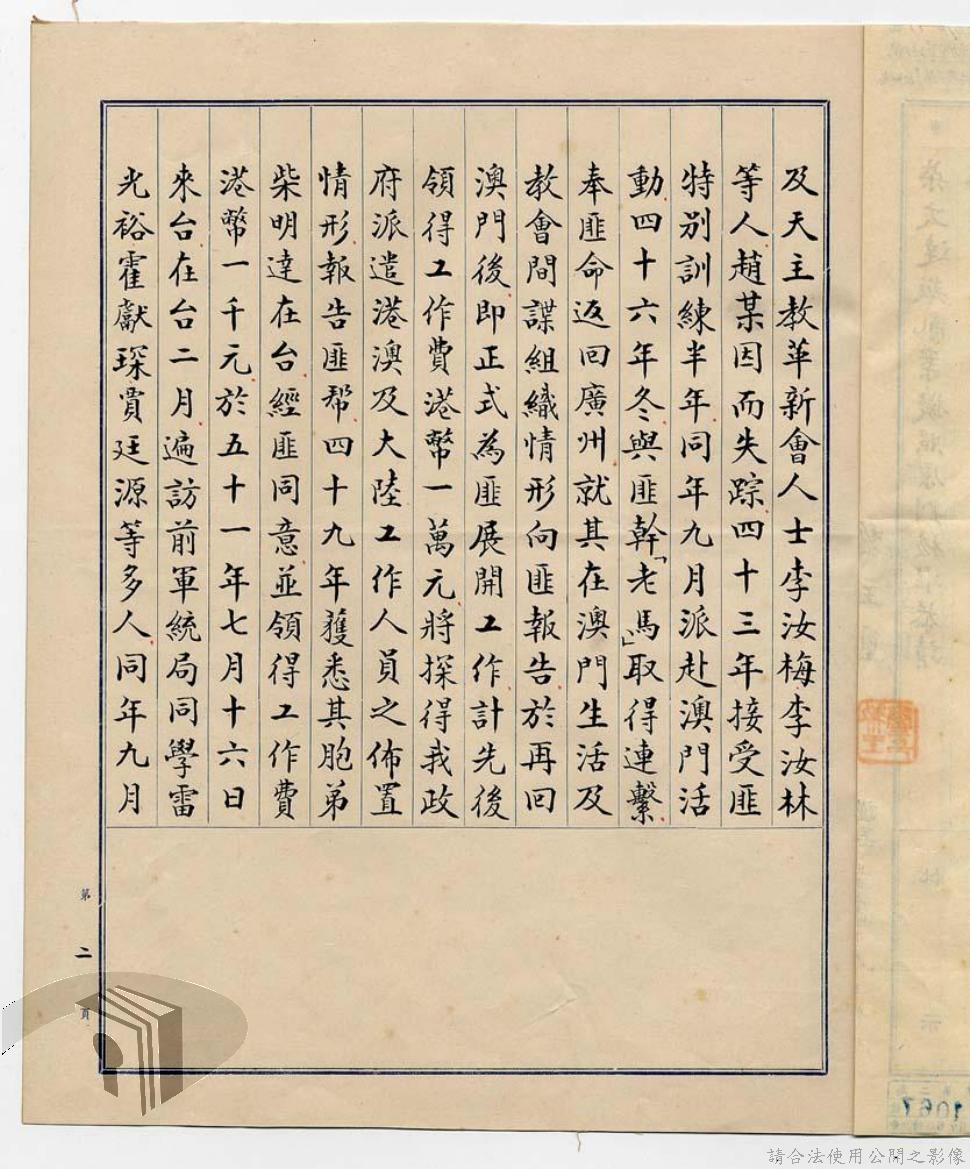 及天主教革新會人士李汝梅李汝林
等人趙某因而失踪四十三年接受匪
特別訓練半年同年九月派赴澳門活
動四十六年冬與匪幹「老馬」取得連繫
奉匪命返回廣州就其在澳門生活及
教會間諜組織情形向匪報告於再回
澳門後即正式為匪展開工作計先後
領得工作費港幣一萬元將探得我政
府派遣港澳及大陸工作人員之佈置
情形報告匪幫四十九年獲悉其胞弟
柴明達在台經匪同意並領得工作費
港幣一千元於五十一年七月十六日
來台在台二月遍訪前軍統局同學雷
光裕霍獻琛賈廷源等多人同年九月
第二頁
請合法使用公開之影像